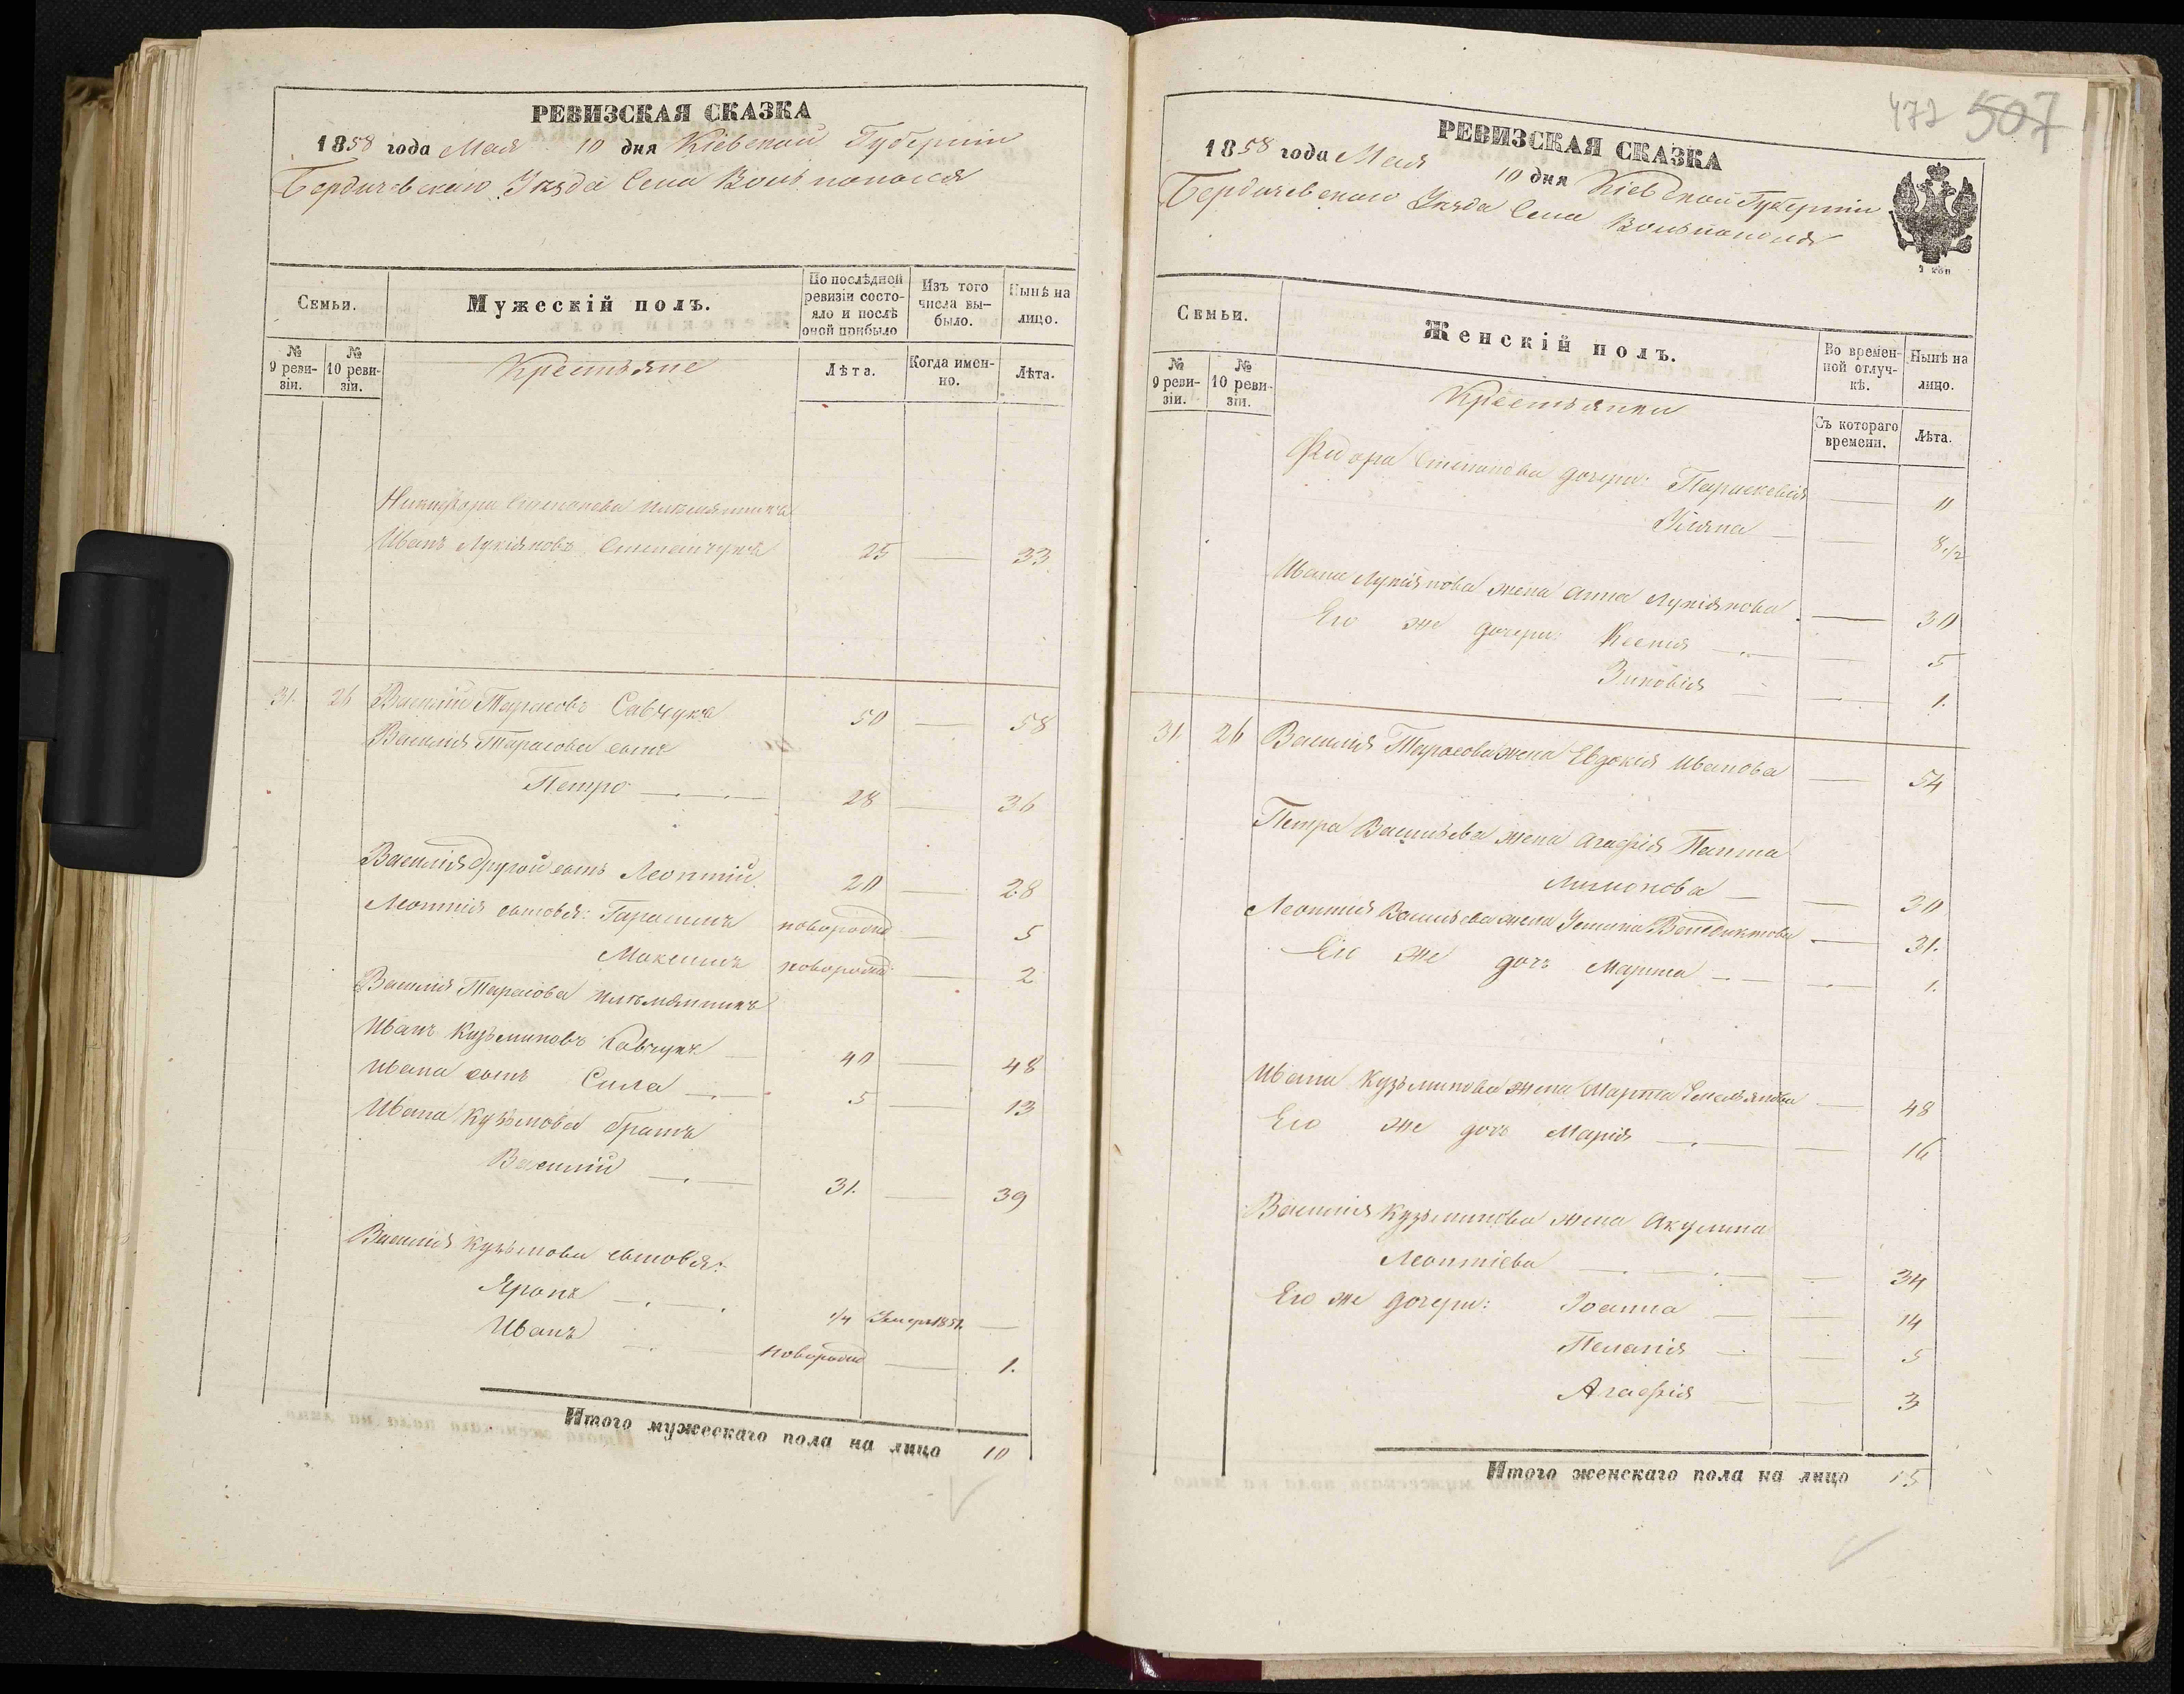 РЕВИЗСКАЯ СКАЗКА
1858 года Мая 10 дня Кіевской Губерніи
Бердичевскаго Уѣзда Села
Семьи.
Мужескій полъ.
По послѣдней ревизіи состояло и послѣ оной прибыло
Изъ того числа выбыло.
Нынѣ на лицо.
№ 9 ревизіи.
№ 10 ревизіи.
Крестьяне
Лѣта.
Когда именно.
Лѣта.
Никифора Степанова племянникъ
Иванъ Лукіяновъ Степанчукъ 25 — 33
31. 26 Василій Тарасовъ Савчукъ 50 — 58
Василія Тарасова сынъ
Петро — 28 — 36
Василія другой сынъ Леонтій 20 — 28
Леонтія сыновья: Гарасимъ новорожд — 5
Максимъ новорожд — 2
Василія Тарасова племянникъ
Иванъ Кузьминовъ Савчукъ — 40 — 48
Ивана сынъ Сила — 5 — 13
Ивана Кузьмова братъ
Василій — 31. — 39
Василія Кузьмова сыновья:
Яронъ — 1/4 Умеръ 1851. —
Иванъ — новорожд — 1.
Итого мужескаго пола на лицо 10
472 507
РЕВИЗСКАЯ СКАЗКА
1858 года Мая 10 дня Кіевской Губерніи
Бердичевскаго Уѣзда Села
Семьи.
Женскій полъ.
Во временной отлучкѣ.
Нынѣ на лицо.
№ 9 ревизіи.
№ 10 ревизіи.
Крестьянки
Съ котораго времени.
Лѣта.
Степанова дочери: Параскевія — 11
Уляна — 8 1/2
Ивана Лукіянова жена Анна Лукіянова — 30
Его же дочери: Ксенія — 5
Зиновія — 1.
31. 26 Василія Тарасова жена Евдокія Иванова — 54
Петра Васильева жена Агафія Панте
лимонова — 30
Леонтія Васильева жена Устина Венедиктова — 31.
Его же дочь Марта — 1.
Ивана Кузьминова жена Марта Емельянова — 48
Его же дочь Марія — 16
Василія Кузьминова жена Акулина
Леонтіева — 34
Его же дочери: Іоанна — 14
Пелагія — 5
Агафія — 3
Итого женскаго пола на лицо 15